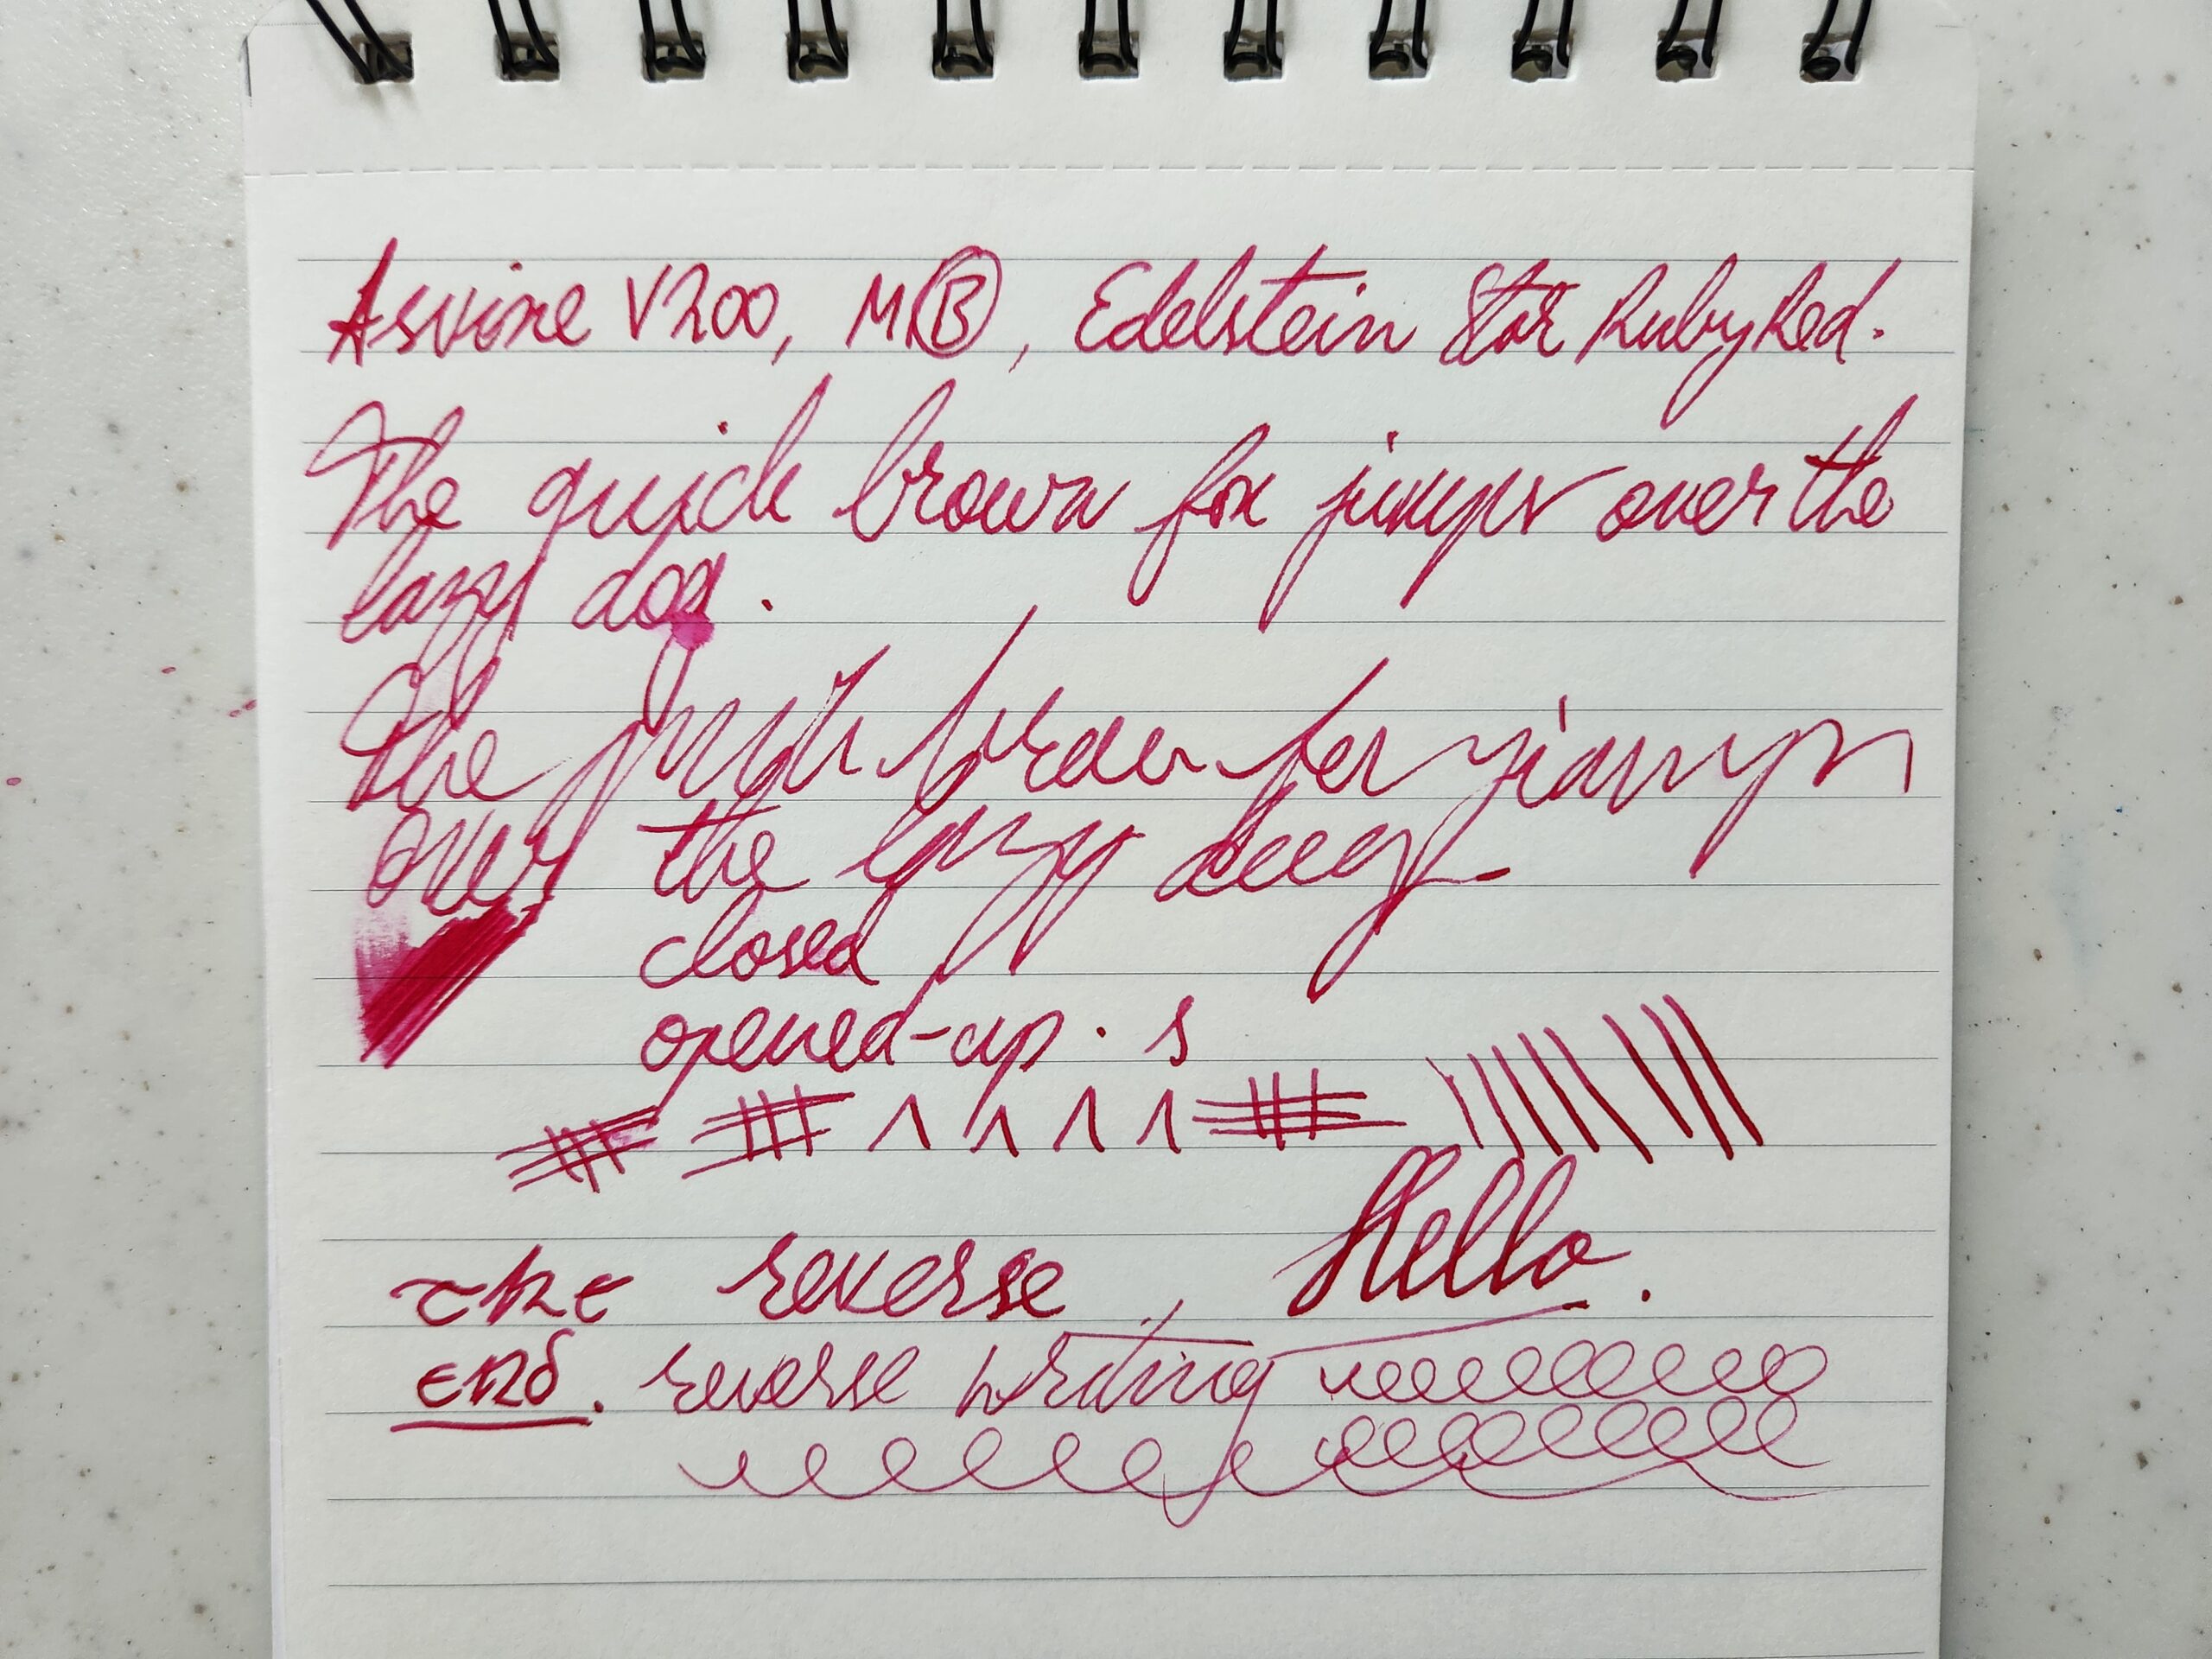 Asvine V200, M B, Edelstein Star Ruby Red.
The quick brown fox jumps over the
lazy dog.
The quick brown fox jumps
over the lazy dog.
closed
opened-up. s
the reverse, Hello.
end. reverse writing